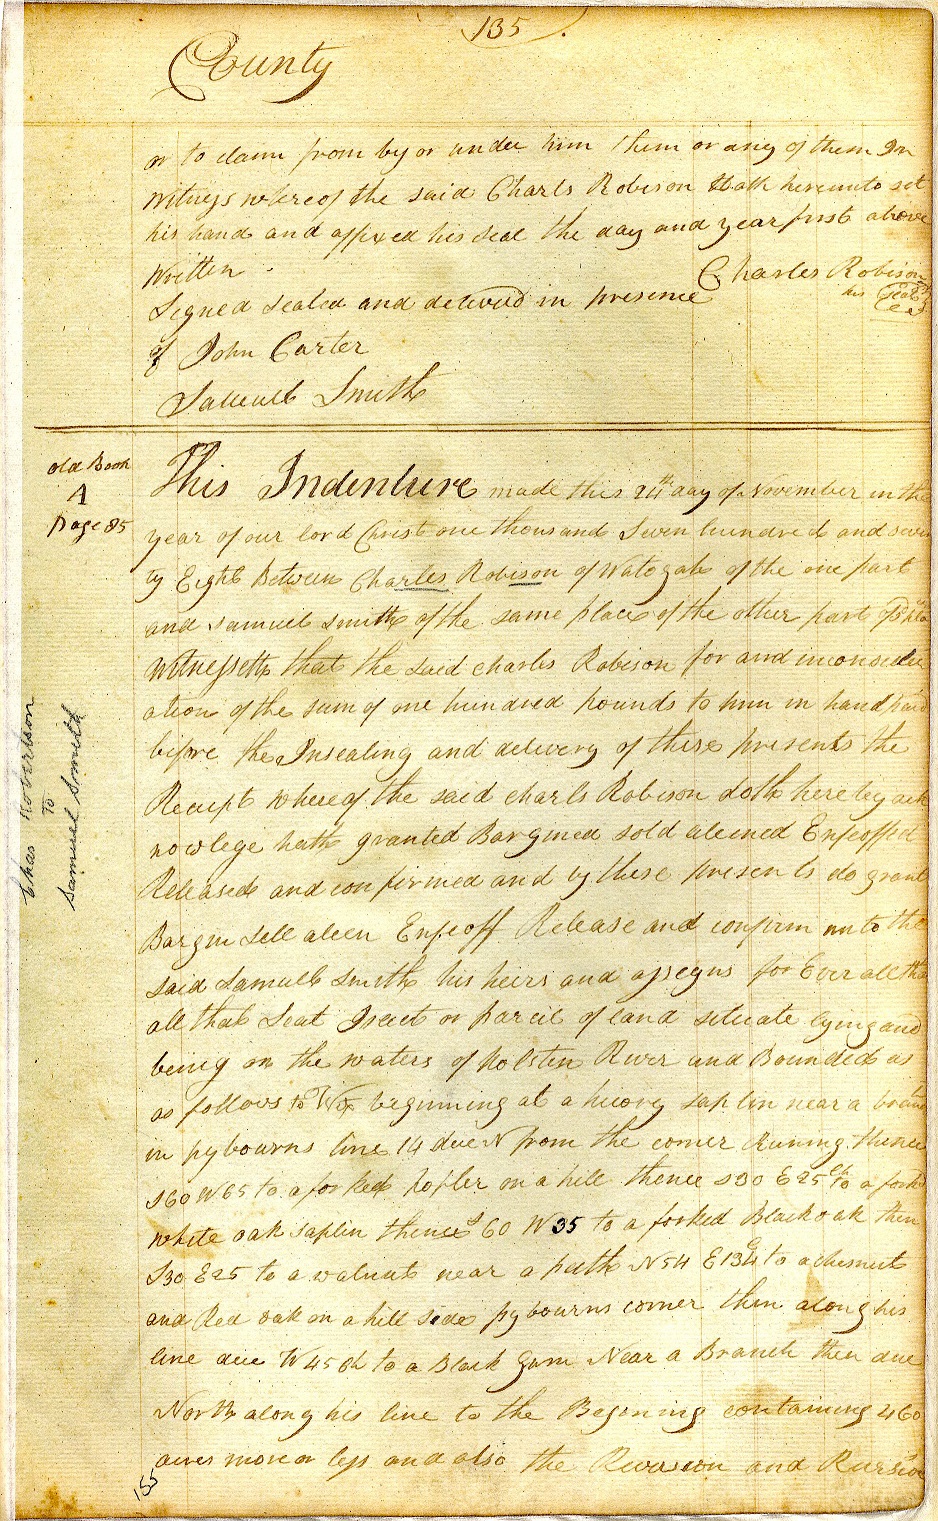 135.
County
or to claim from by or under him them or any of them In
Witness whereof the said Charls Robison Hath hereunto set
his hand and affixed his seal the day and year first above
Written
Charles Robison
his Seal
Signed sealed and delivered in presence
of John Carter
Samuell Smith
Old Book
A
page 85
This Indenture made this 24th day of November in the
year of our lord Christ one thousand Seven hundred and seven
ty Eight Between Charles Robison of Watogah of the one part
and Samuel Smith of the same place of the other part
Witnesseth that the said Charles Robison for and inconsider
ation of the sum of one hundred pounds to him in hand paid
before the Insealing and delivery of these presents the
Receipt whereof the said Charls Robison doth hereby ack
nowlege hath granted Bargined sold aliened Enfeoffed
Released and confirmed and by these presents do grant
Bargin sell alien Enfeoff Release and confirm unto the
said Samuell Smith his heirs and assegns for Ever all that
all that Seat Tract or parcil of land situate lying and
being on the waters of Holsten River and Bounded as
as follows to Wit beginning at a hicory saplin near a branch
in pybourns line 14 due N from the corner Runing thence
S60 W65 to a forked popler on a hill thence S30 E25 to a forked
white oak saplin thence S 60 W 35 to a forked Black oak then
S30 E25 to a walnut near a path N54 E134 to a chesnut
and Red oak on a hill side pybourns corner then along his
line due W 45 ch to a Black Gum Near a Branch then due
North along his line to the Begining containing 460
acres more or less and also the Revarsion and Rursion
155
Chas Robertson
To
Samuel Smith